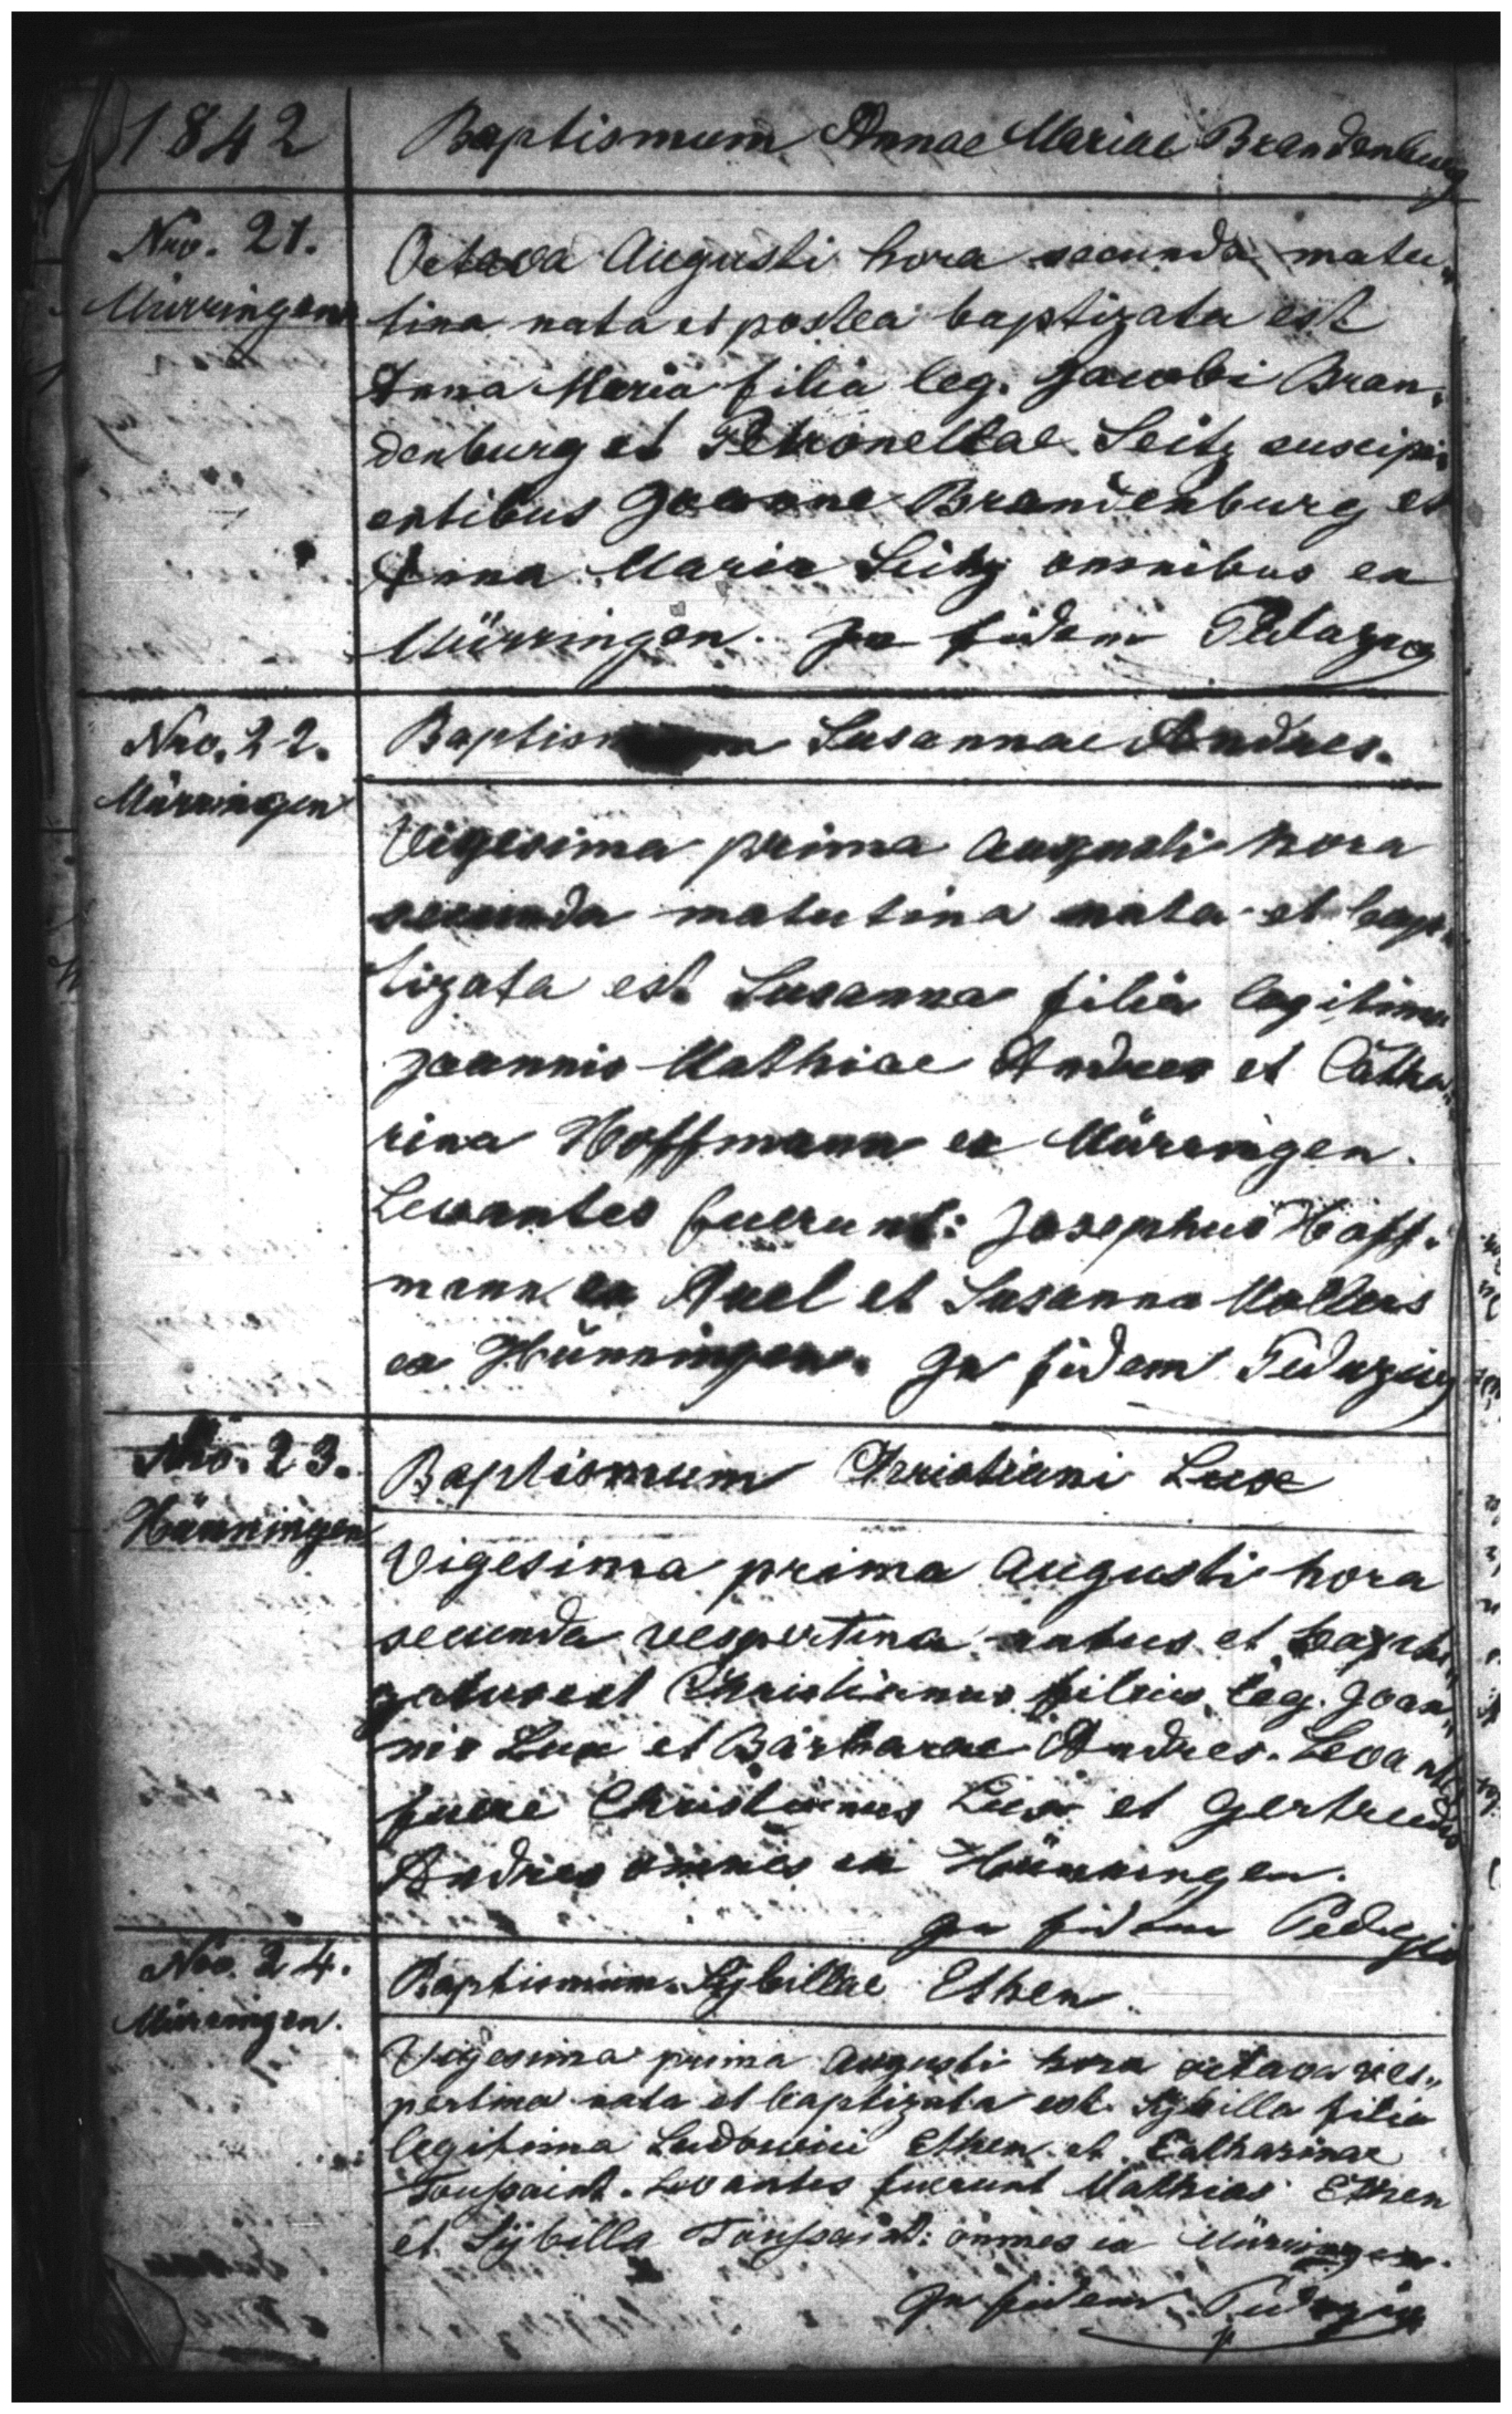 1842
Baptismum Annae Mariae Brandenburg
Nro. 21.
Mürringen
Octava Augusti hora secunda matu„
tina nata et postea baptizata est
Anna Maria filia leg. Jacobi Bran„
denburg et Petronellae Seitz suscipi„
entibus Joanne Brandenburg et
Anna Maria Seitz omnibus ex
Mürringen. In fidem
Nro. 22.
Mürringen
Susannae Andres.
Vigesima prima Augusti hora
secunda matutina nata et bap„
tizata est Susanna filia legitima
Joannis Mathiae Andres et Catha„
rina Hoffmann ex Mürringen.
Levantes fuerunt: Josephus Hoff„
mann ex et Susanna
ex Hünningen. In fidem
Nro. 23.
Hünningen
Baptismum Christiani Lux
Vigesima prima Augusti hora
secunda vespertina natus et bapti„
zatus est Christianus filius leg. Joan„
nis Lux et Barbarae Andres. Levantes
fuere Christianus Lux et Gertrudis
Andres omnes ex Hünningen.
In fidem
Nro. 24.
Mürringen.
Baptismum Sÿbillae Ethen
Vigesima prima Augusti hora octava ves„
pertina nata et baptizata est Sÿbilla filia
legitima Ludovici Ethen et Catharinae
Toussaint. Levantes fuerunt Mathias Ethen
et Sÿbilla Toussaint: omnes ex Mürringen.
In fidem